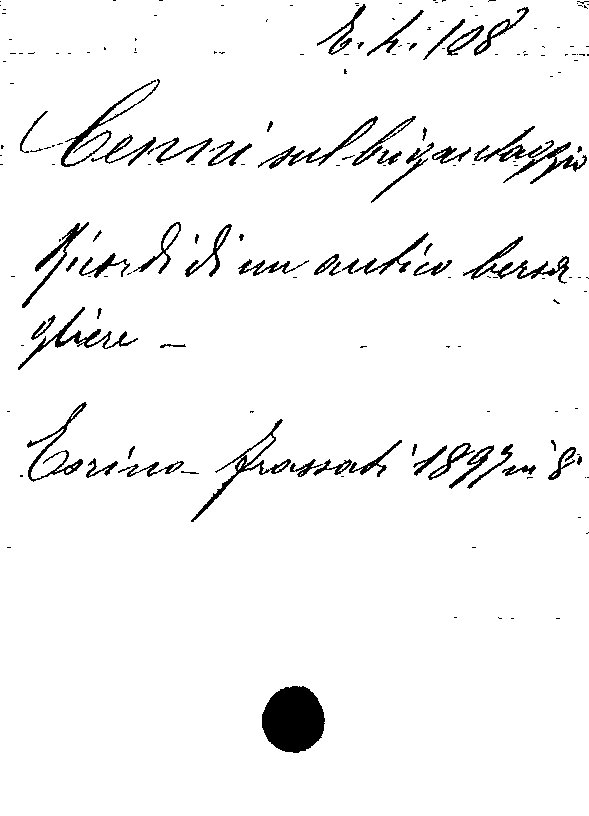 E. h. 108
Cenni sul brigantaggio
Ricordi di un antico bersa
gliere —
Torino Frassati 1897 in 8°